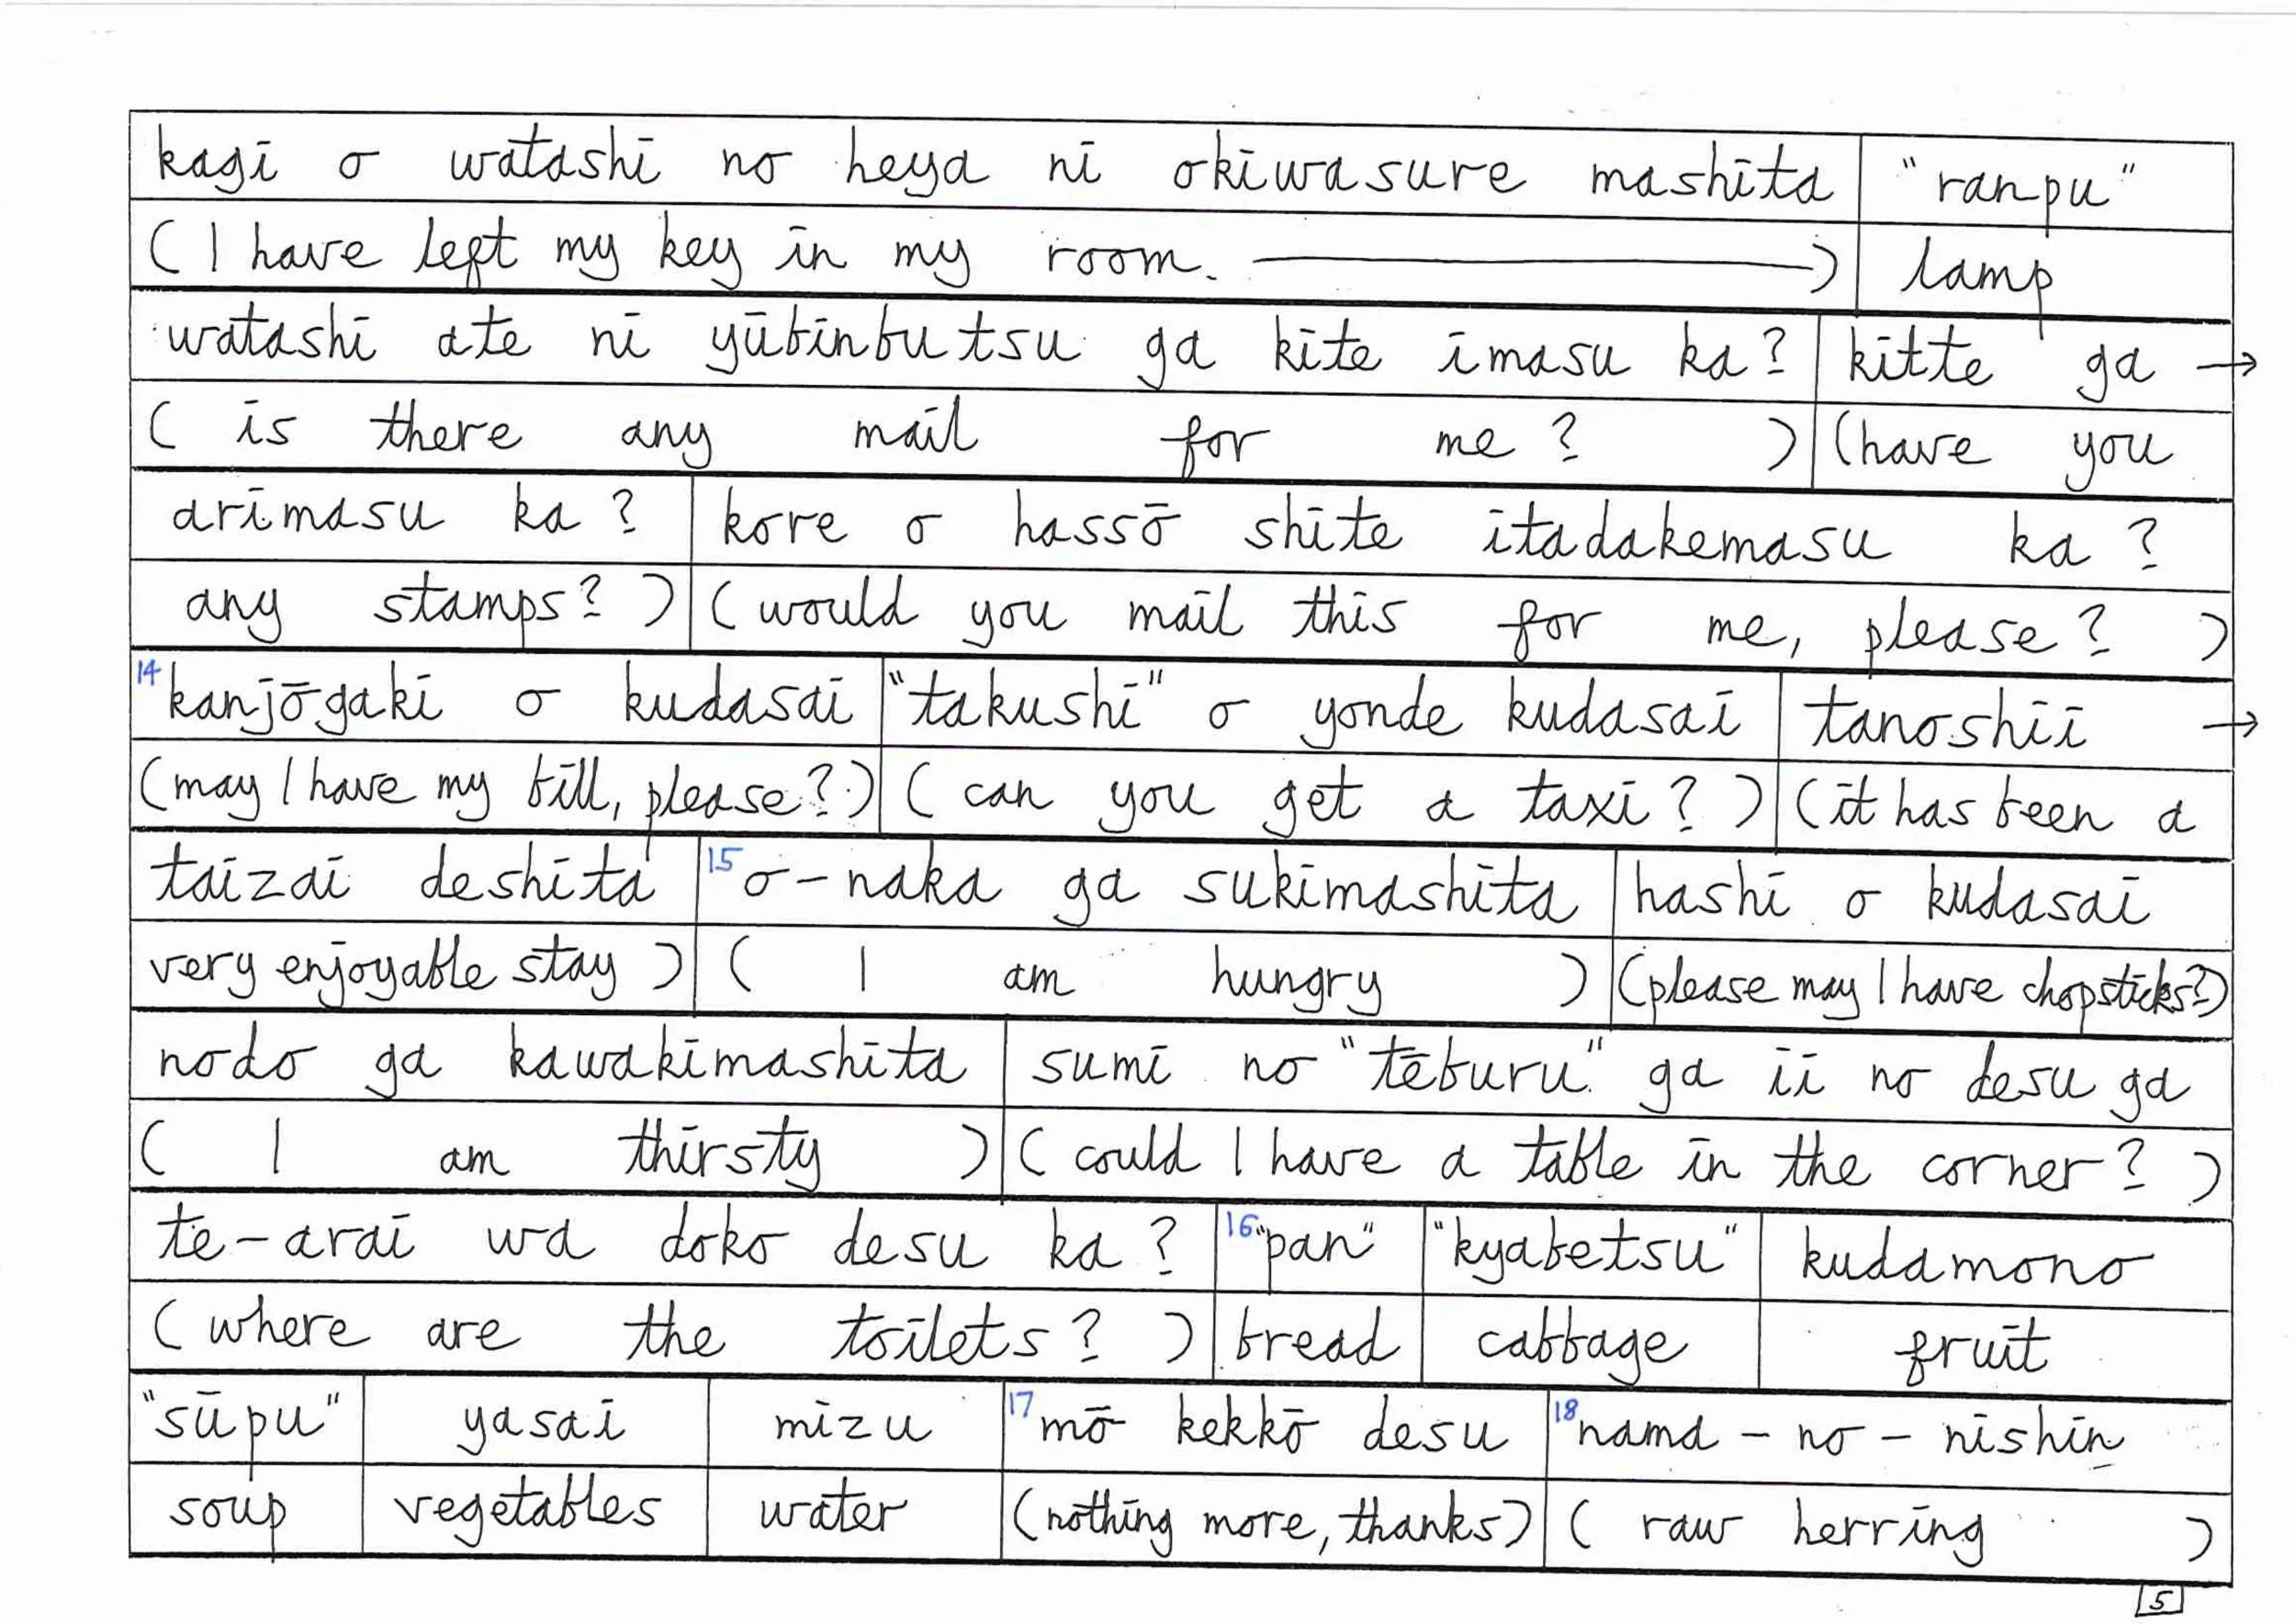 kagi o watashi no heya ni okiwasure mashita "ranpu"
(I have left my key in my room. ———) lamp
watashi ate ni yūbinbutsu ga kite imasu ka? kitte ga →
(is there any mail for me?) (have you
arimasu ka? kore o hassō shite itadakemasu ka?
any stamps?) (would you mail this for me, please?)
14 kanjōgaki o kudasai "takushi" o yonde kudasai tanoshii →
(may I have my bill, please?) (can you get a taxi?) (it has been a
taizai deshita 15 o-naka ga sukimashita hashi o kudasai
very enjoyable stay) (I am hungry) (please may I have chopsticks?)
nodo ga kawakimashita sumi no "tēburu" ga ii no desu ga
(I am thirsty) (could I have a table in the corner?)
te-arai wa doko desu ka? 16 "pan" "kyabetsu" kudamono
(where are the toilets?) bread cabbage fruit
"sūpu" yasai mizu 17 mō kekkō desu 18 nama-no-nishin
soup vegetables water (nothing more, thanks) (raw herring)
5